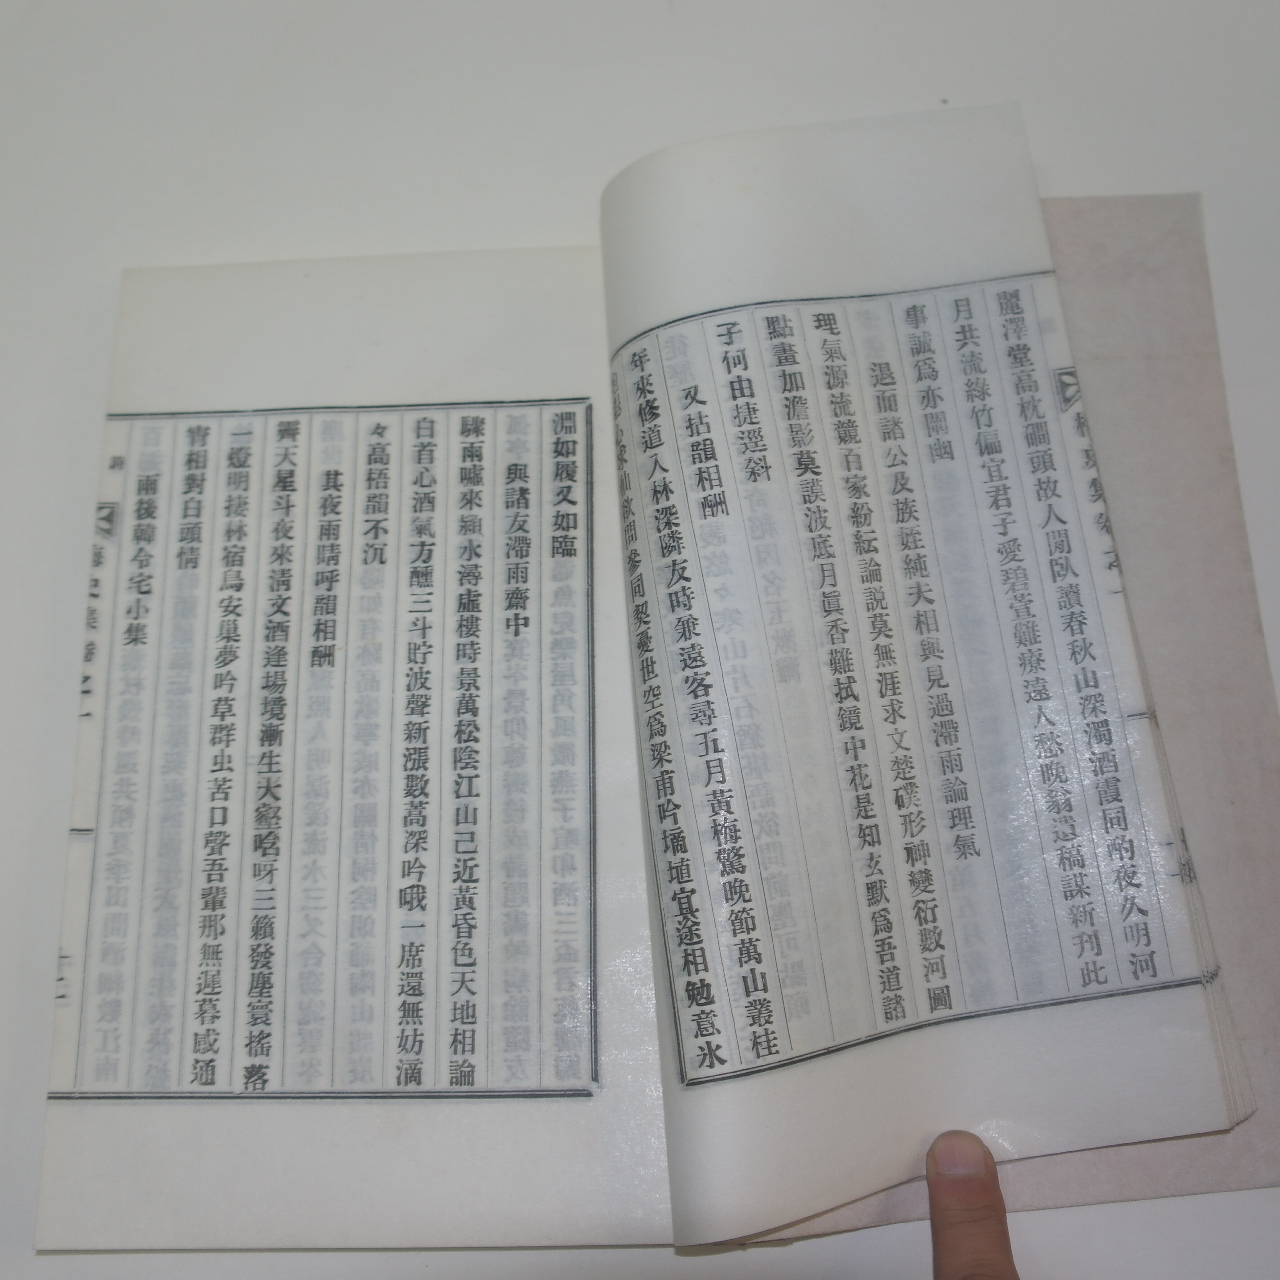 麗澤堂高枕磵頭故人閒臥讀春秋山深濁酒霞同酌夜久明河
月共流綠竹偏宜君子愛碧萱難療遠人愁晩翁遺稿謀新刊此
事誠爲亦闡幽
退而諸公及族姪純夫相與見過滯雨論理氣
理氣源流競百家紛紜論說莫無涯求文楚礏形神變衍數河圖
點畫加澹影莫謨波底月眞香難拭鏡中花是知玄默爲吾道諸
子何由捷逕斜
又拈韻相酬
年來修道入林深隣友時兼遠客尋五月黃梅驚晩節萬山叢桂
參同契憂世空爲梁甫吟擿埴宜途相勉意氷
淵如履又如臨
與諸友滯雨齋中
驟雨噓來潁水潯虛樓時景萬松陰江山已近黃昏色天地相論
白首心酒氣方醺三斗貯波聲新漲數蒿深吟哦一席還無妨滴
々高梧韻不沉
其夜雨晴呼韻相酬
霽天星斗夜來清文酒逢場境漸生大壑唅呀三籟發塵寰搖落
一燈明捿林宿鳥安巢夢吟草群虫苦口聲吾輩那無遲暮感通
宵相對白頭情
雨後韓令宅小集
梅史集卷之一
詩
十二